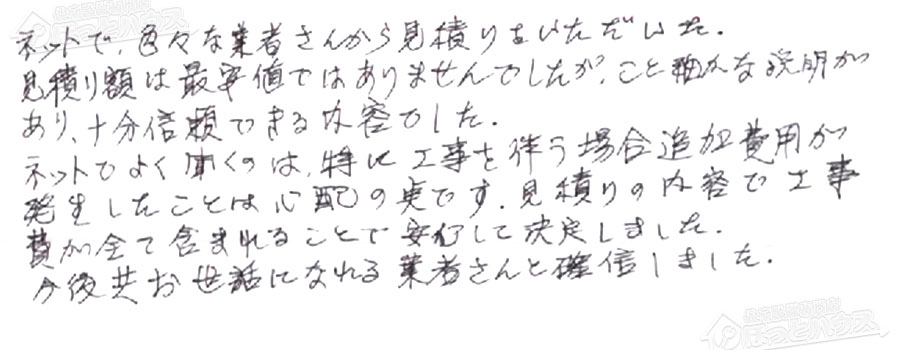 ネットで、色々な業者さんから見積りをいただいた。
見積り額は最安値ではありませんでしたが、こと細かな説明が
あり、十分信頼できる内容でした。
ネットでよく聞くのは、特に工事を伴う場合追加費用が
発生したことは心配の実です。見積りの内容で工事
費が全て含まれることで安心して決定しました。
今後共お世話になれる業者さんと確信しました。
ほっとハウス
ほっとハウス